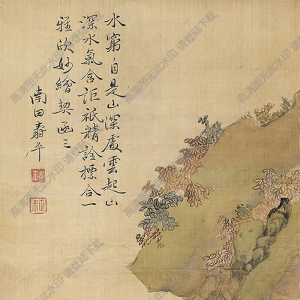 水窮自是山深處雲起山
深水氣含詎祇精詮標合一
雅欣妙繪契函三
南田壽平